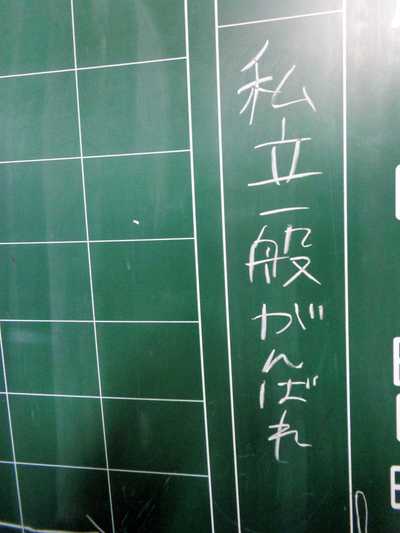 私立一般がんばれ